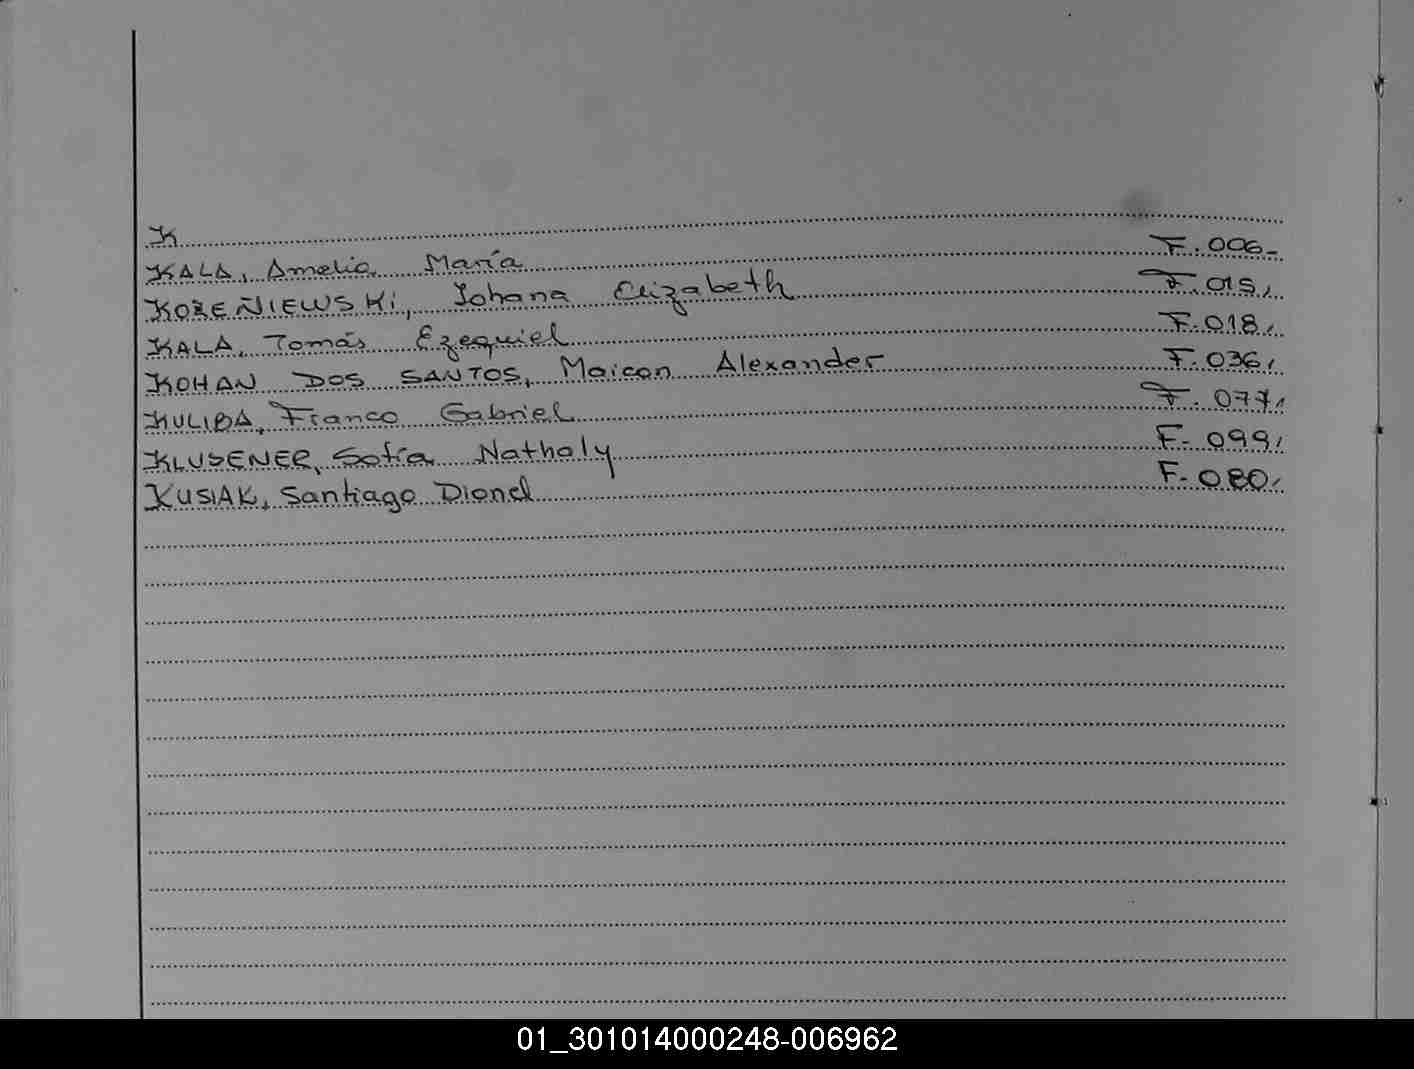 K
KALA, Amelia María F. 006-
KOZEÑIEWSKi, Johana Elizabeth F. 015,
KALA, Tomás Ezequiel F. 018,
KOHAN DOS SANTOS, Maicon Alexander F. 036,
KULIBA, Franco Gabriel F. 077,
KLUSENER, Sofía Nathaly F- 099,
KUSIAK, Santiago Dionel F- 080,
01_301014000248-006962